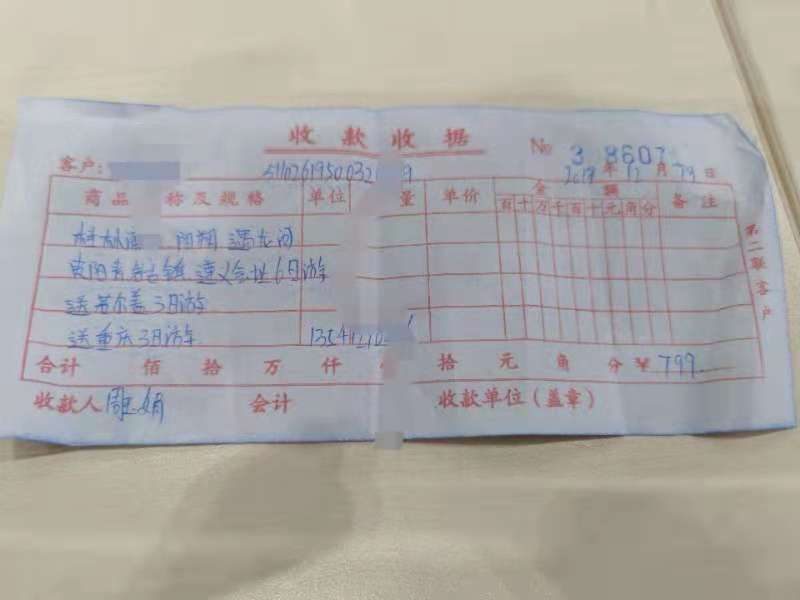 收款收据 № 3 8607
客户: 5110261950032 9 2019年12月 日
商品 称及规格 单位 量 单价 金额 备注
百十万千百十元角分
桂林 阳朔 遇龙河
贵阳青岩古镇 遵义会址6日游
送若尔盖3日游
送重庆3日游 1354
合计 佰 拾 万 仟 拾 元 角 分 ¥ 799
收款人 娟 会计 收款单位(盖章)
第二联客户